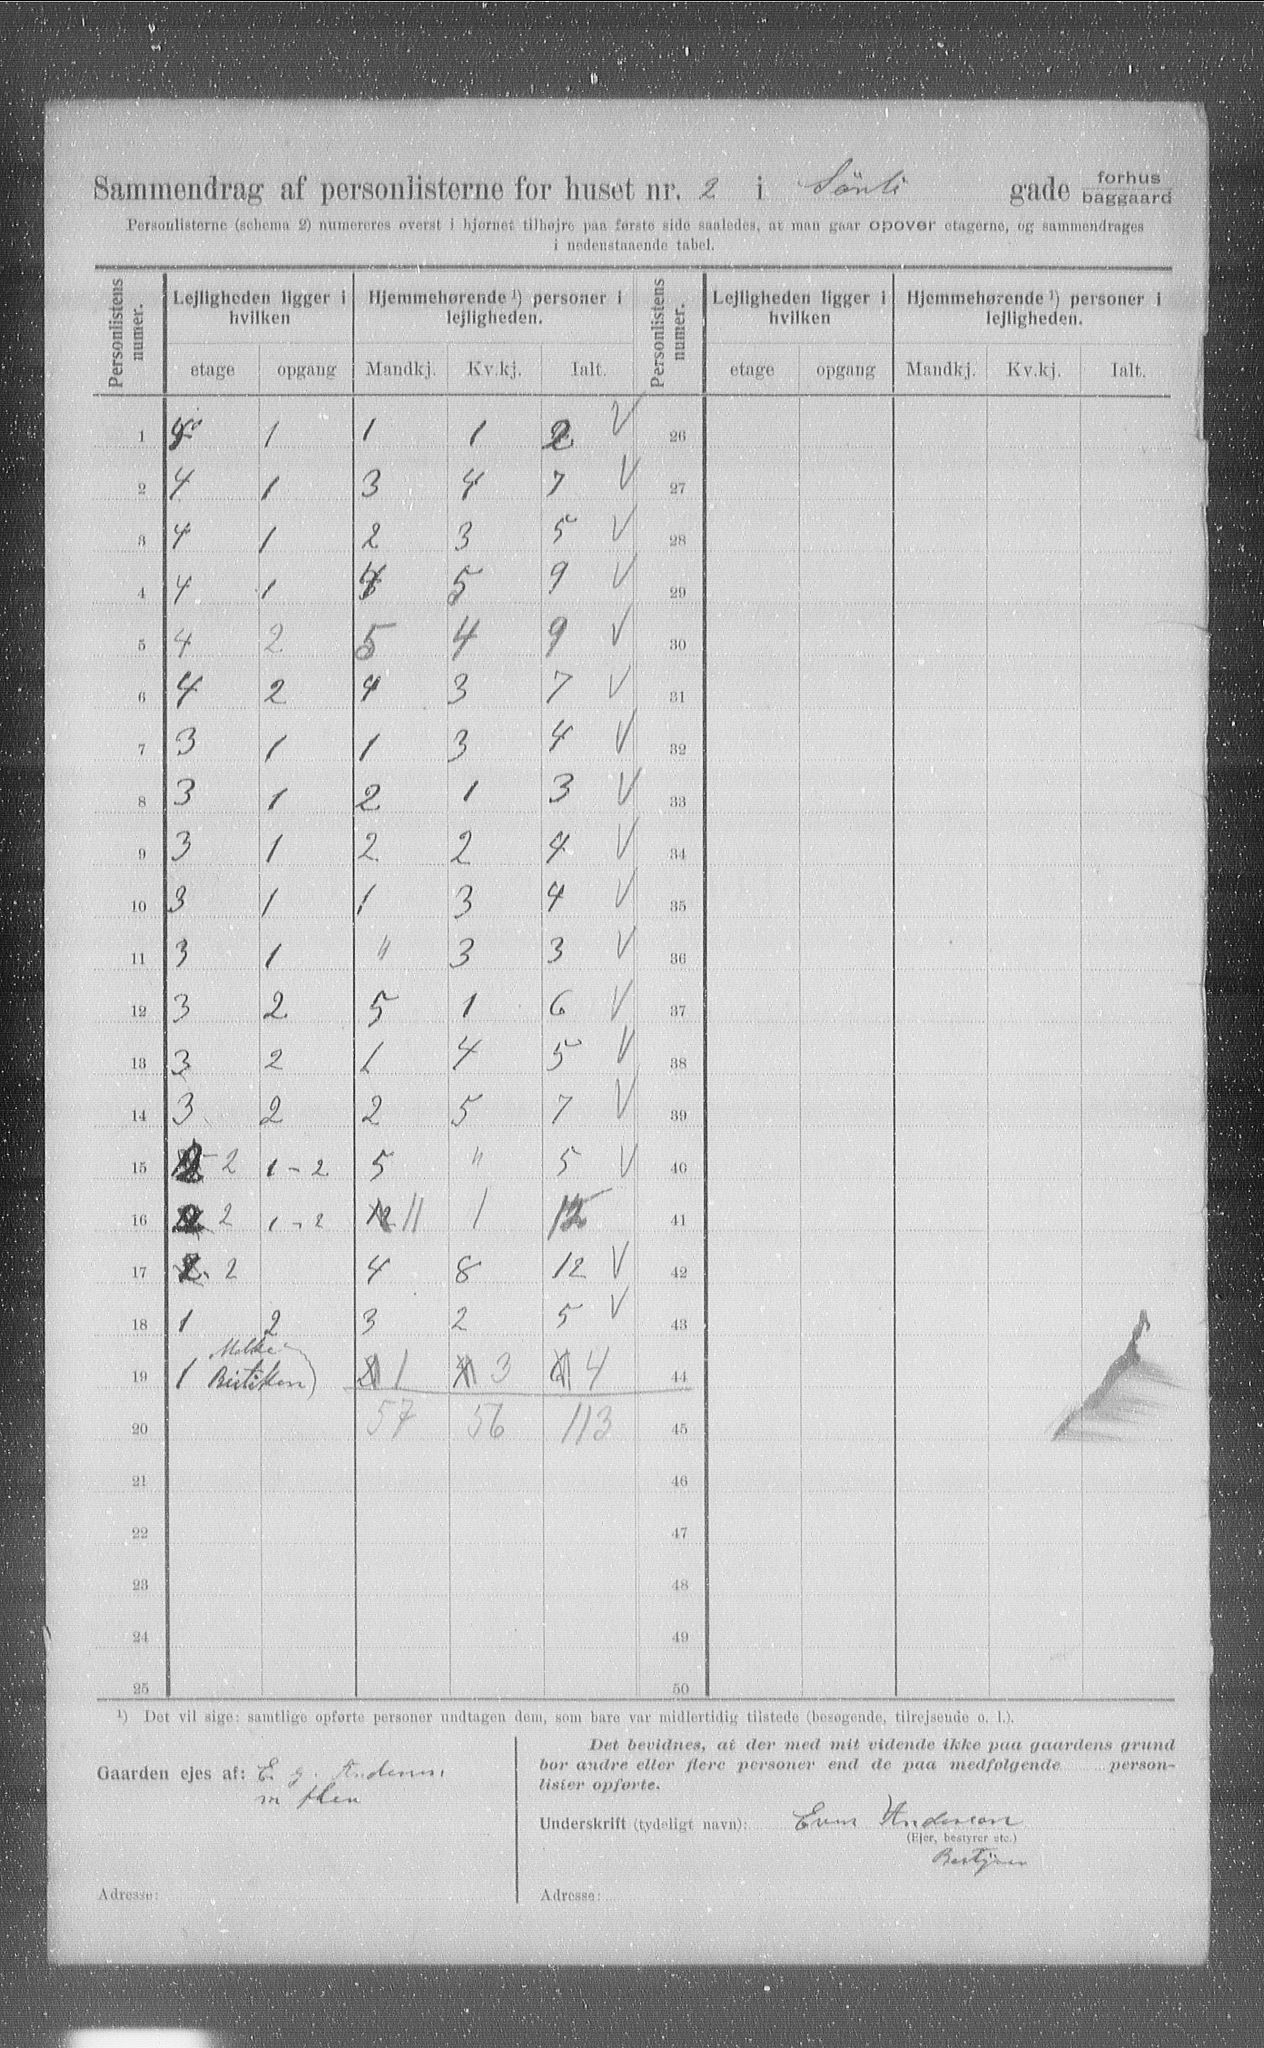 Sammendrag af personlisterne for huset nr. 2 i Sönli gade forhus baggaard
Personlisterne (schema 2) numereres øverst i hjørnet tilhøjre paa første side saaledes, at man gaar opover etagerne, og sammendrages
i nedenstaaende tabel.
Personlistens numer. Lejligheden ligger i hvilken Hjemmehørende ¹) personer i lejligheden. Personlistens numer. Lejligheden ligger i hvilken Hjemmehørende ¹) personer i lejligheden.
etage opgang Mandkj. Kv.kj. Ialt. etage opgang Mandkj. Kv.kj. Ialt.
1 1 1 1 2 V 26
2 4 1 3 4 7 V 27
3 4 1 2 3 5 V 28
4 4 1 4 5 9 V 29
5 4 2 5 4 9 V 30
6 4 2 4 3 7 V 31
7 3 1 1 3 4 V 32
8 3 1 2 1 3 V 33
9 3 1 2 2 4 V 34
10 3 1 1 3 4 V 35
11 3 1 " 3 3 V 36
12 3 2 5 1 6 V 37
13 3 2 1 4 5 V 38
14 3 2 2 5 7 V 39
15 2 1-2 5 " 5 V 40
16 2 1-2 11 1 12 41
17 2 4 8 12 V 42
18 1 2 3 2 5 V 43
19 1 1 3 4 44
20 57 56 113 45
21 46
22 47
23 48
24 49
25 50
¹) Det vil sige: samtlige opførte personer undtagen dem, som bare var midlertidig tilstede (besøgende, tilrejsende o. l.).
Gaarden ejes af: E. g. Andersen
m flere
Adresse:
Det bevidnes, at der med mit vidende ikke paa gaardens grund
bor andre eller flere personer end de paa medfølgende person-
lister opførte.
Underskrift (tydeligt navn): Andersen
(Ejer, bestyrer etc.)
Bestyrer
Adresse: